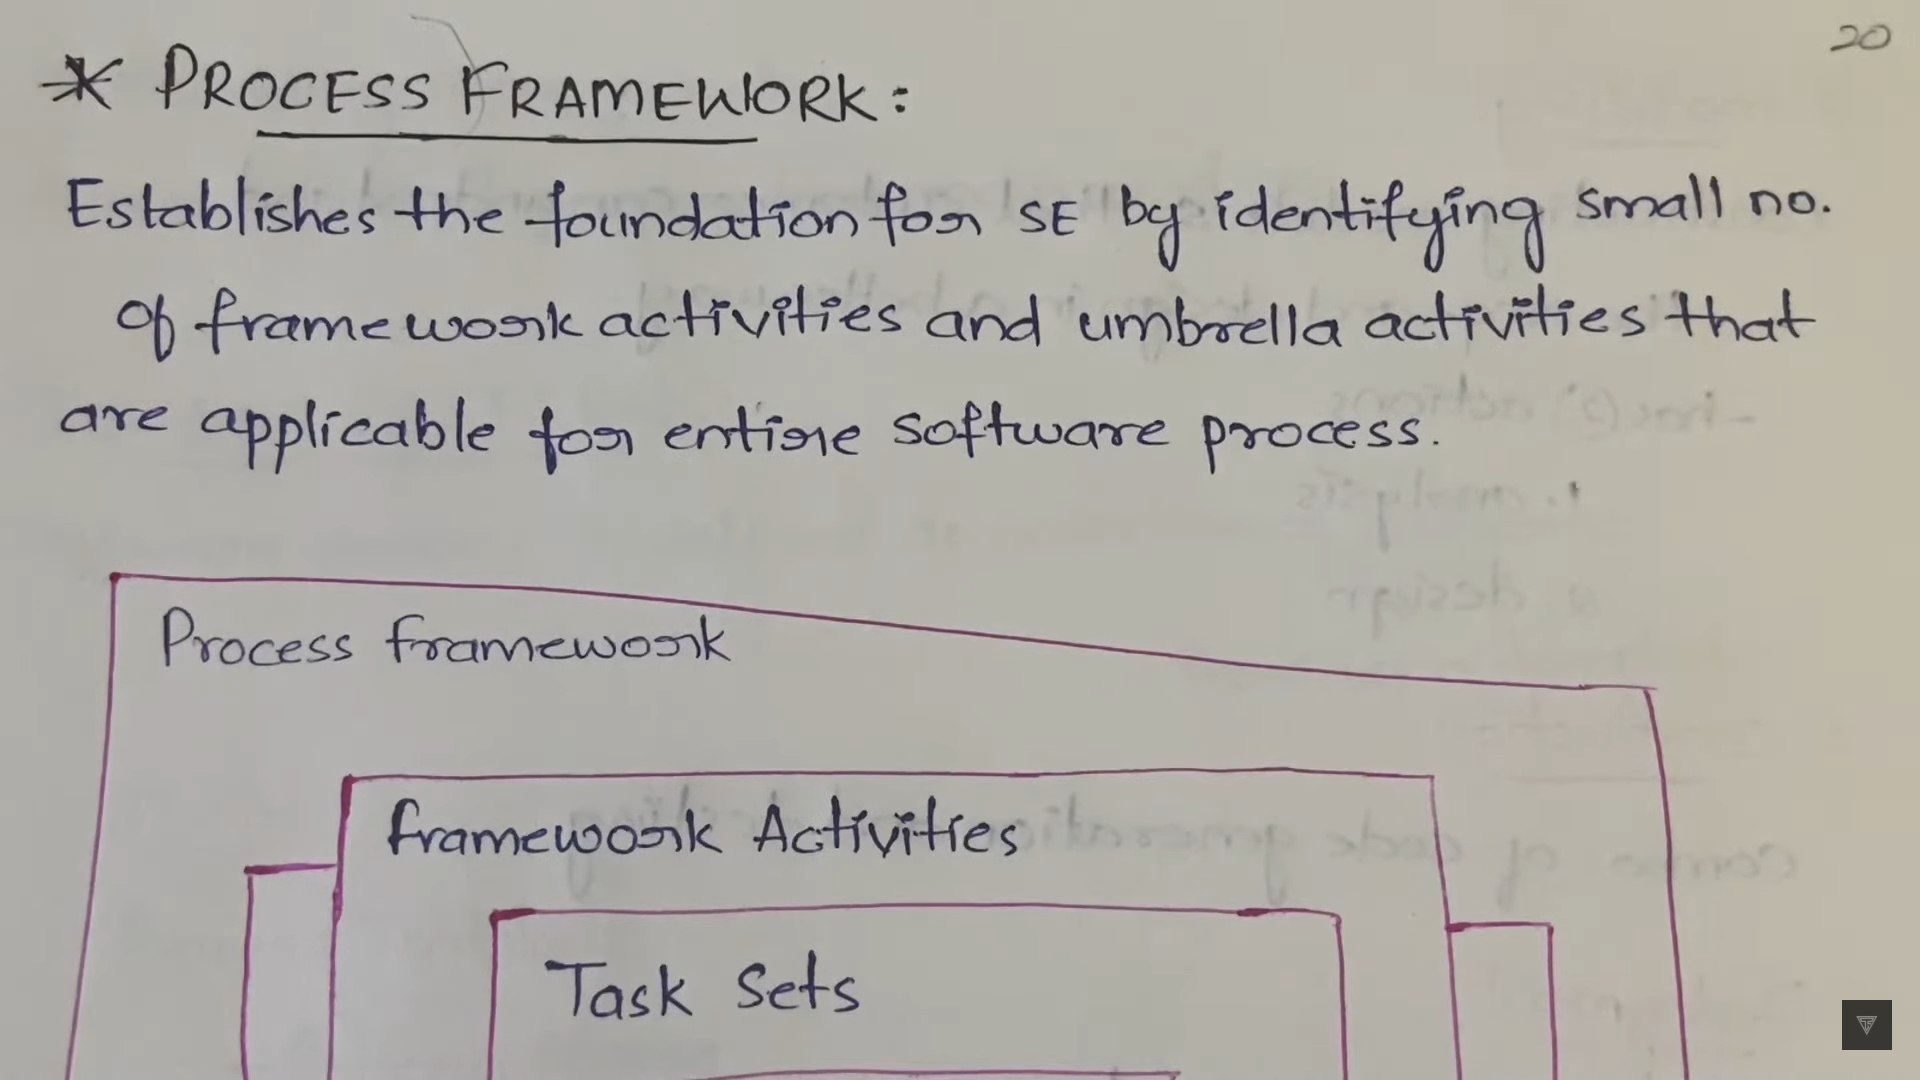 20
* PROCESS FRAMEWORK:
Establishes the foundation for SE by identifying small no.
of framework activities and umbrella activities that
are applicable for entire software process.
Process framework
framework Activities
Task Sets